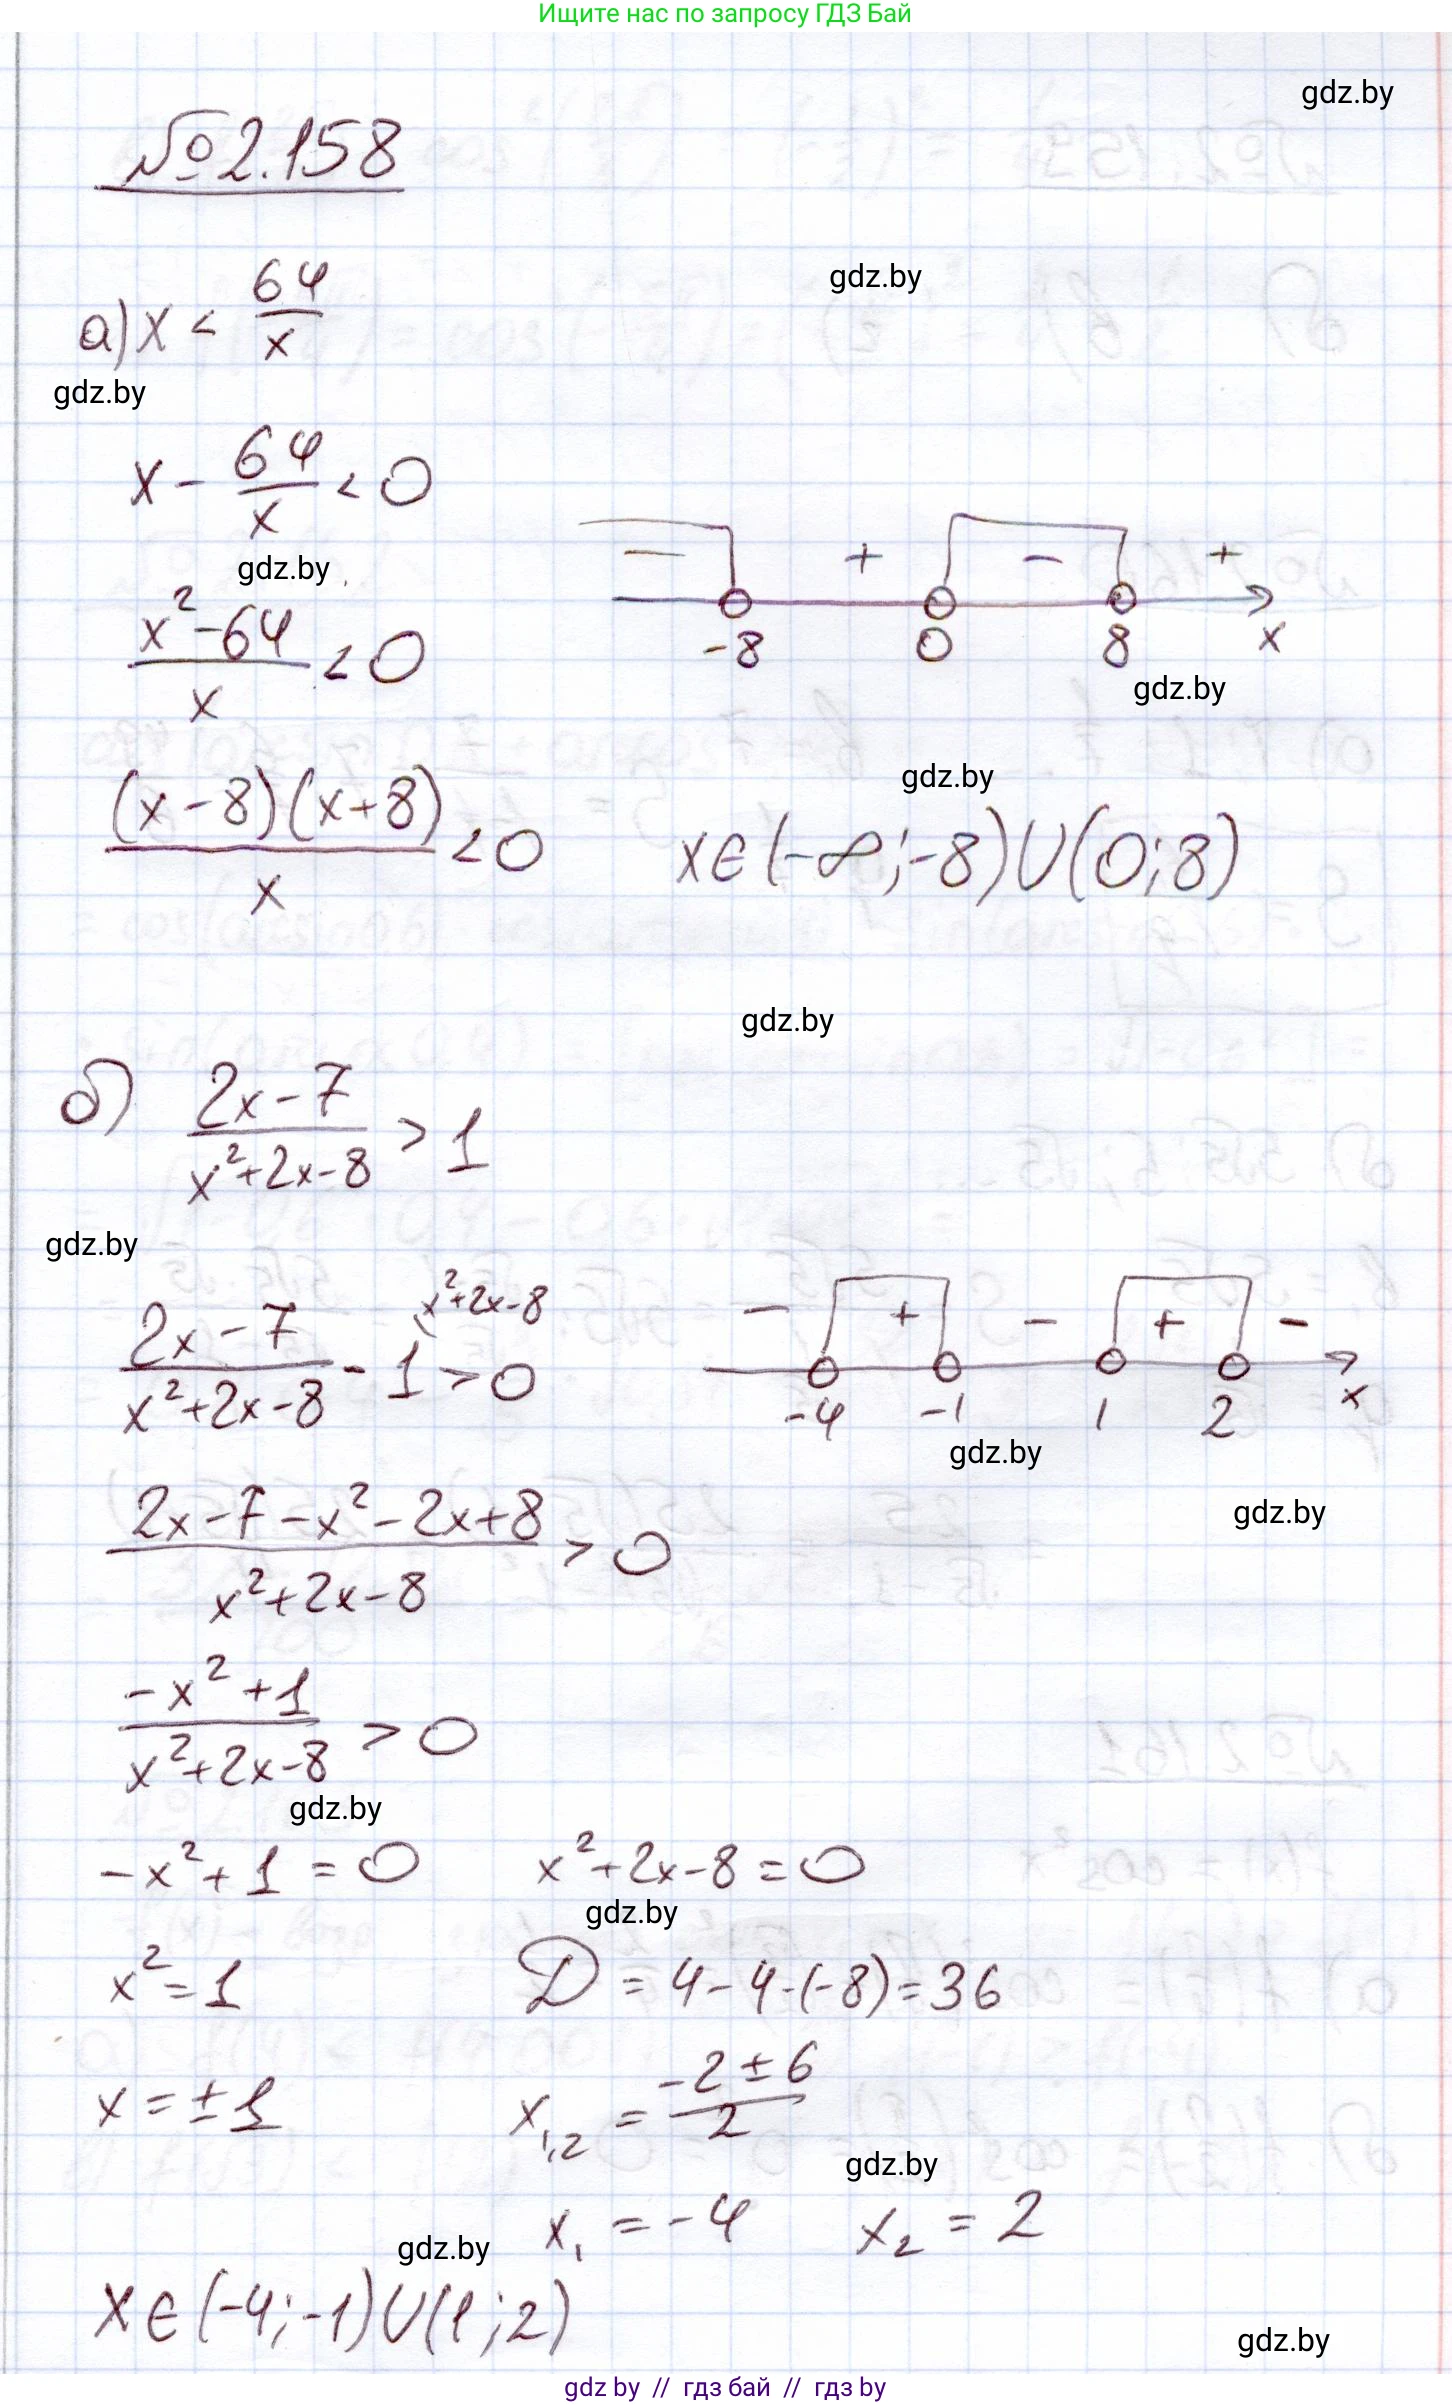 Ищите нас по запросу ГДЗ Бай
gdz.by
№2.158
gdz.by
а) x < 64/x
gdz.by
x - 64/x < 0
gdz.by
(x² - 64)/x < 0
- + - +
-8 0 8 x
gdz.by
gdz.by
((x-8)(x+8))/x < 0
x∈(-∞;-8)∪(0;8)
gdz.by
б) (2x-7)/(x²+2x-8) > 1
gdz.by
(2x-7)/(x²+2x-8) - 1 > 0
x²+2x-8
- + - + -
-4 -1 1 2 x
gdz.by
gdz.by
(2x-7-x²-2x+8)/(x²+2x-8) > 0
(-x²+1)/(x²+2x-8) > 0
gdz.by
-x²+1=0 x²+2x-8=0
gdz.by
x²=1 D=4-4·(-8)=36
x=±1 x₁,₂=(-2±6)/2
gdz.by
x₁=-4 x₂=2
gdz.by
x∈(-4;-1)∪(1;2)
gdz.by
gdz by // гдз бай // гдз by